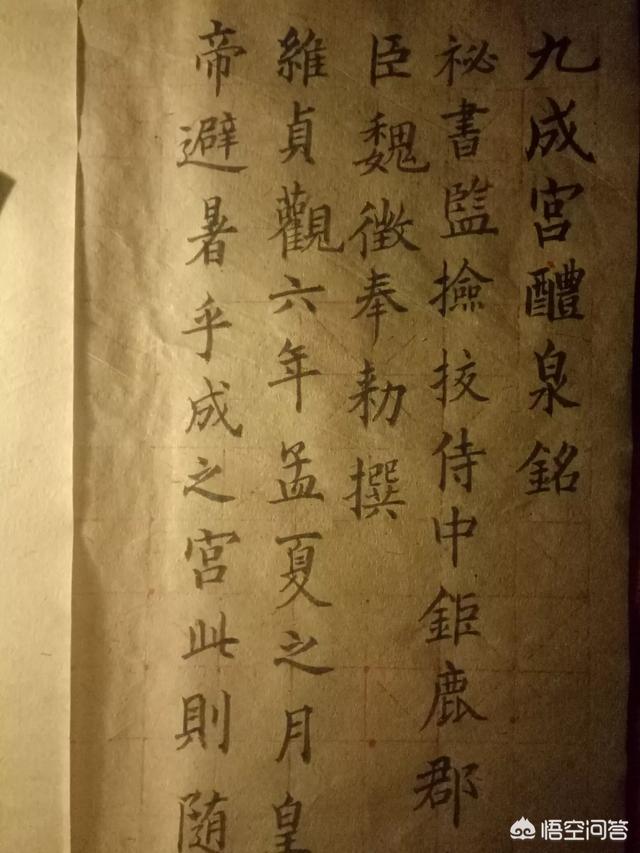 九成宮醴泉銘
祕書監撿挍侍中鉅鹿郡
臣魏徵奉勑撰
維貞觀六年孟夏之月皇
帝避暑乎成之宮此則随
悟空问答